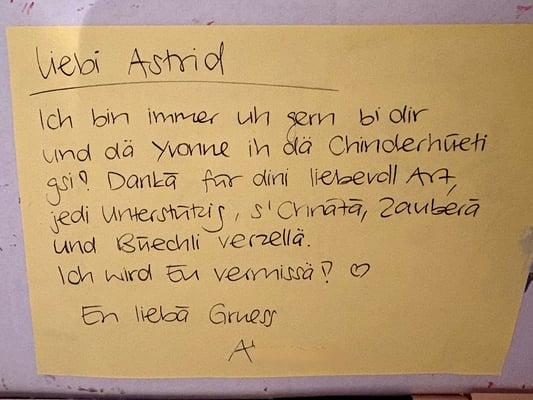 liebi Astrid
Ich bin immer uh gern bi dir
und dä Yvonne ih dä Chinderhüeti
gsi! Dankä für dini liebevoll Art,
jedi Unterstützig, s'Chnätä, Zauberä
und Büechli verzellä.
Ich wird Eu vermissä! ♡
En liebä Gruess
A